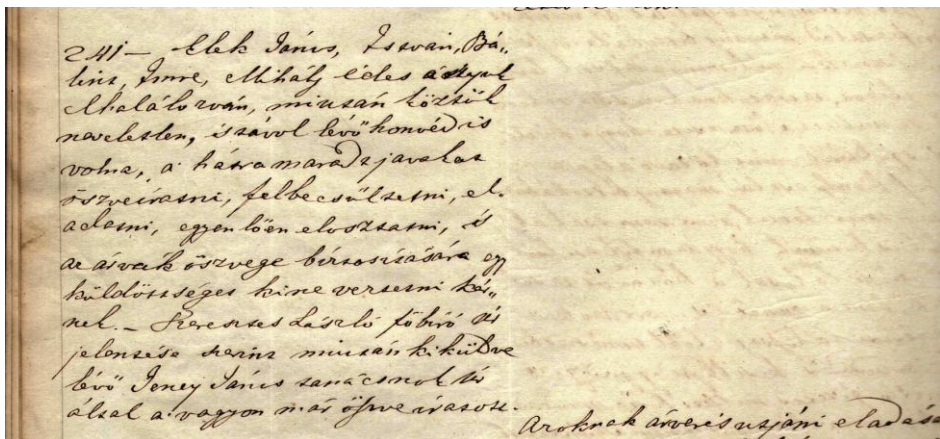 241 – Elek János, Istvan, Bá„
lint, Imre, Mihály édes anyjok
Elhalálozván, miután köztük
neveletlen, is távol lévő honvéd is
volna, a hátra maradt javakat
öszveiratni, felbecsültetni, el-
adatni, egyenlően elosztatni, és
az árvák öszvege biztositására egy
küldöttséget kine veztetni kér„
nek. – Keresztes László főbiró Úr
jelentése szerint miután kiküldve
lévő Jeney János tanácsnok Úr
által a vagyon már öszve iratott.
Azoknak árverés utjáni eladása